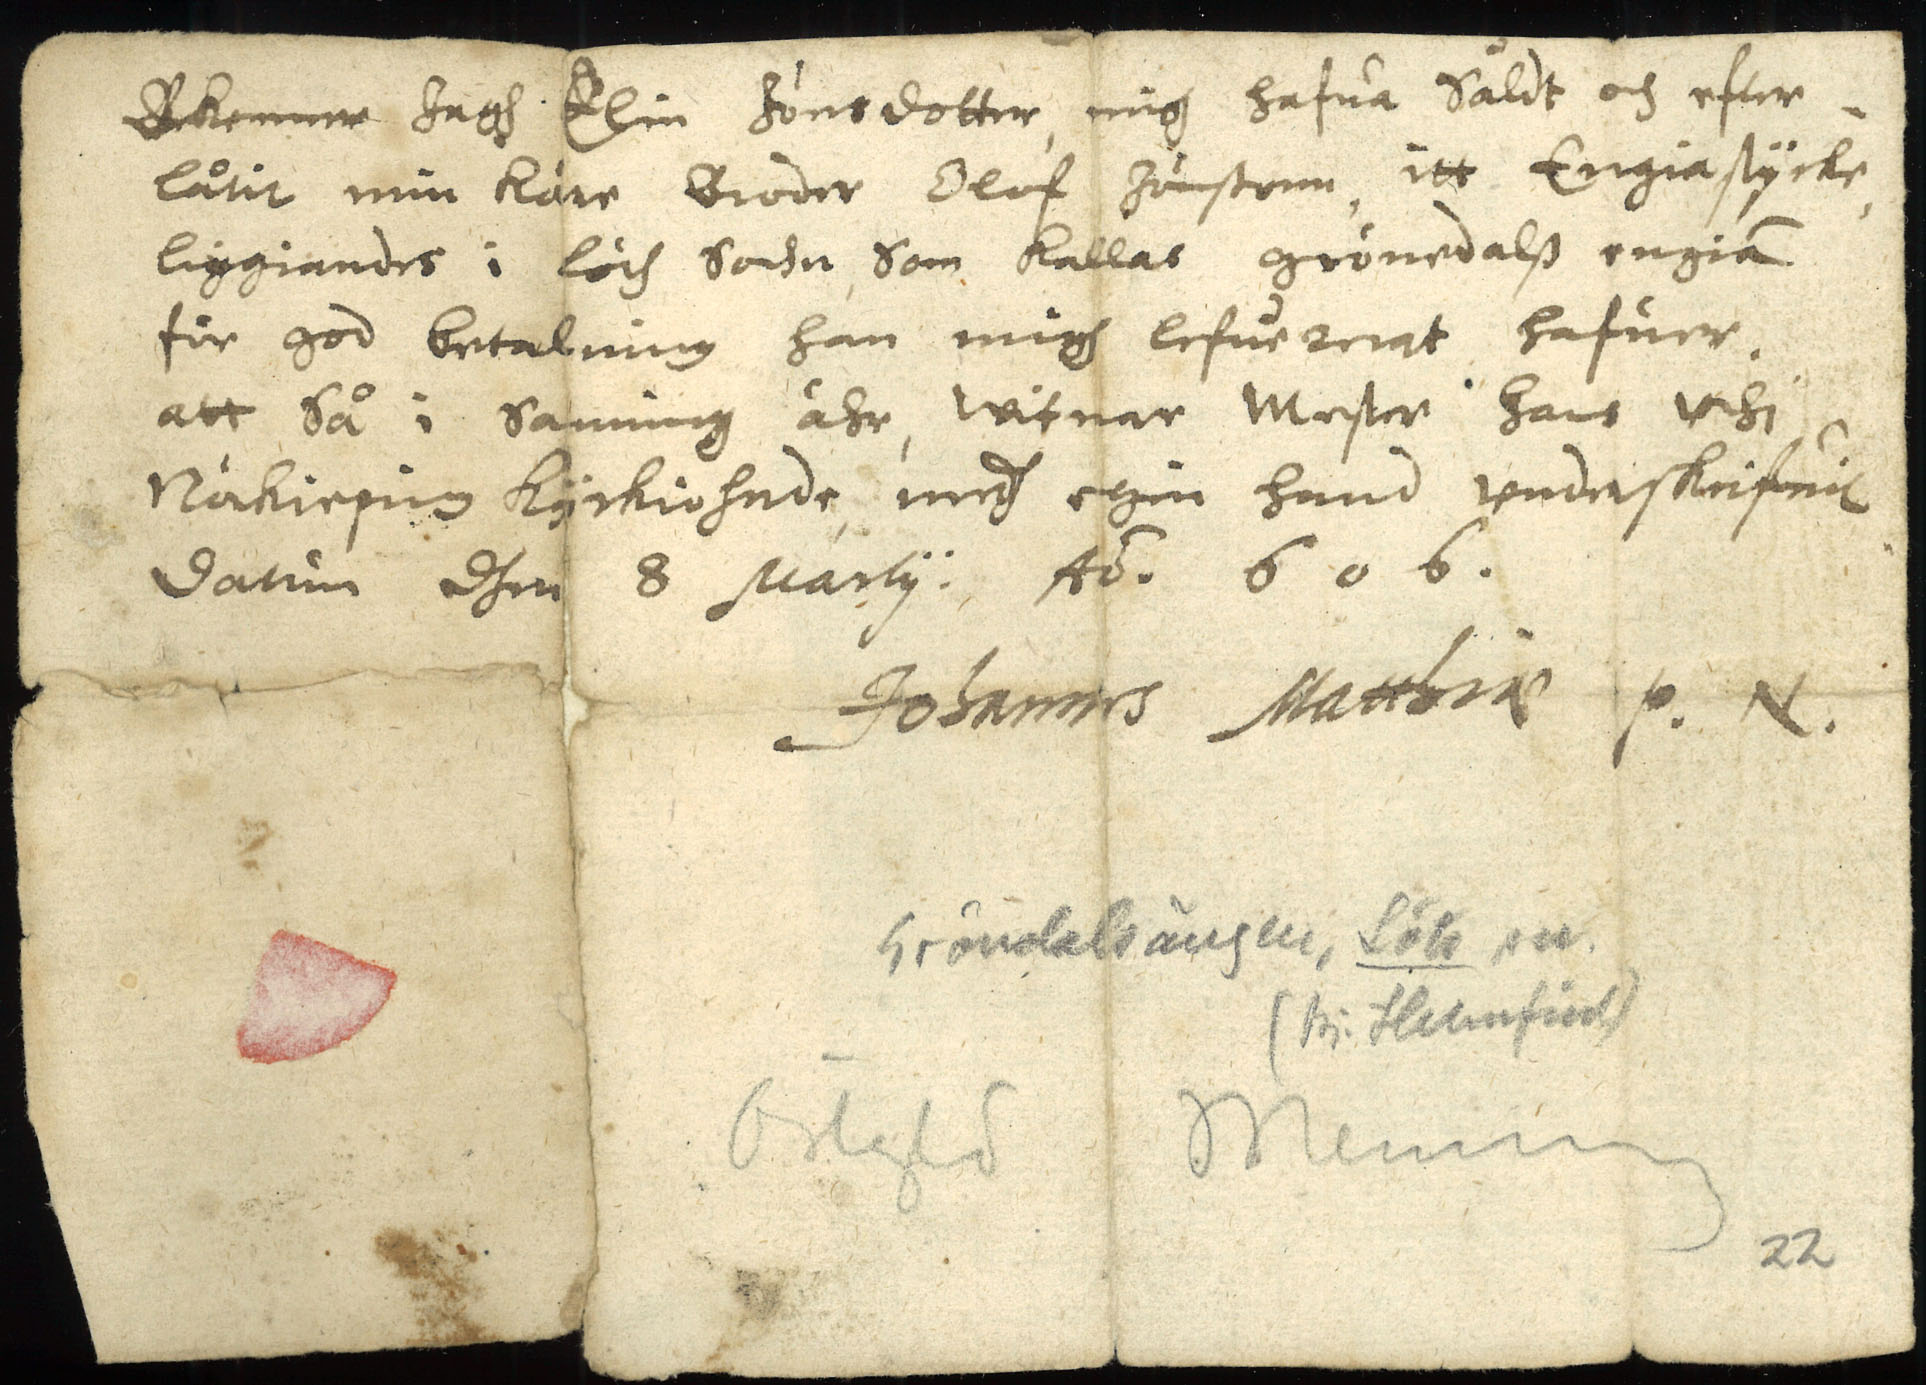 Bekenner Jagh Elin Jönsdotter, migh hafua Såldt och efter-
låtit min käre Broder Oluf Jönssonn, itt Engiastycke,
liggiandes i Löth Sochn, Som kallas grönedalß engian
för god betalning han migh lefuererat hafuer.
att Så i Sanning ähr, witnar Mester Hans vthi
Nörkieping kyrkioherde, medh eghin hand vnderskrifuit
Datum Then 8 Martij. Ao. 606.
Johannes Matthiæ p. N.
Gröndalsängen, Löts sn.
Östgld Memming
22